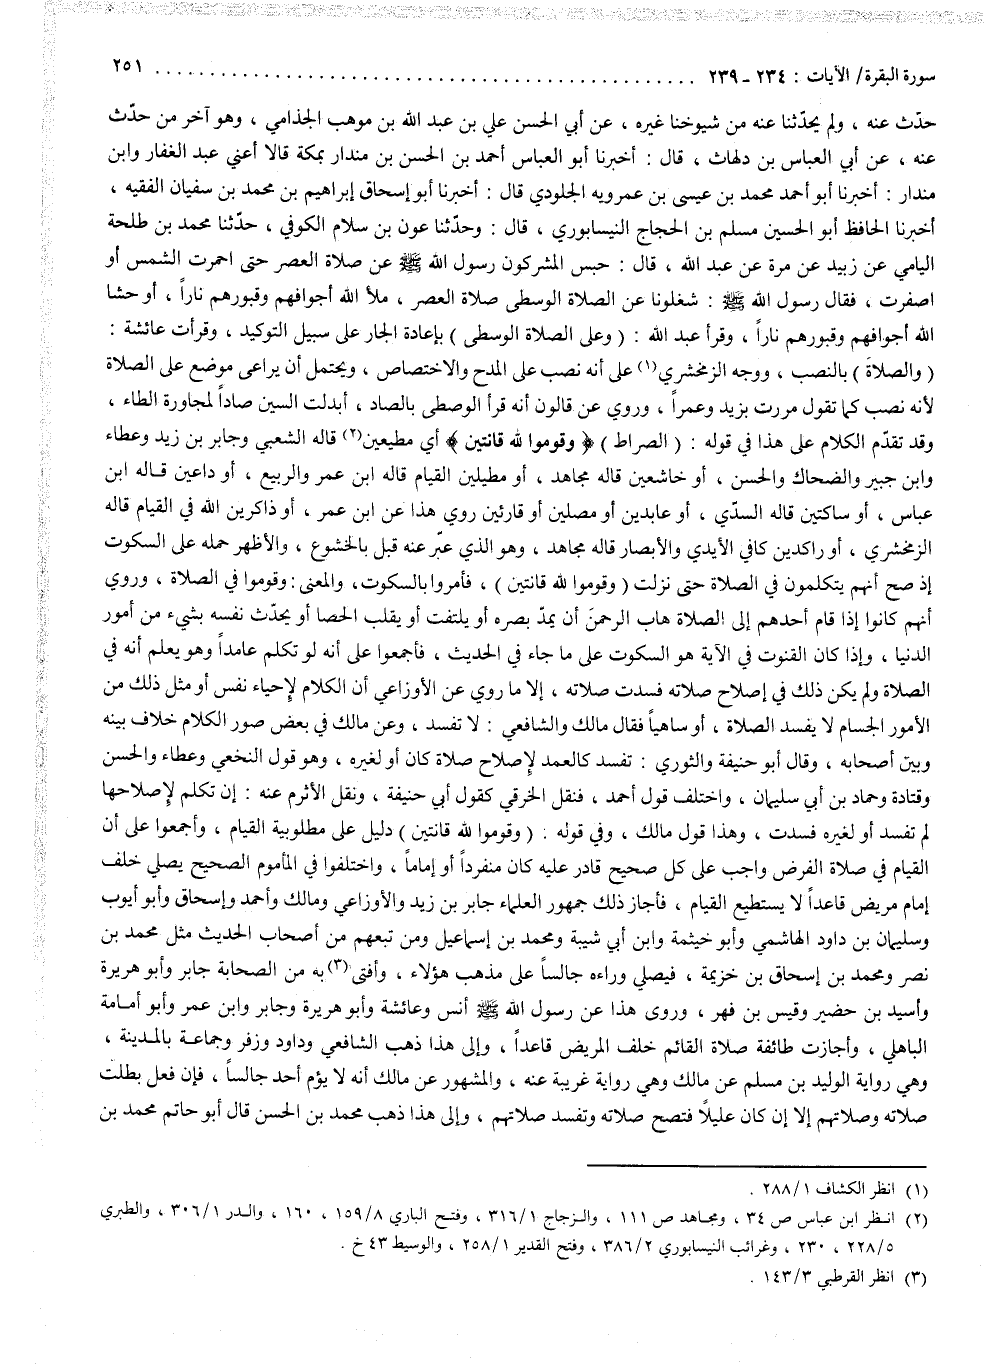 سورة البقرة/ الآيات : ٢٣٤ - ٢٣٩ ........................................................ ٢٥١
حدّث عنه ، ولم يحدّثنا عنه من شيوخنا غيره ، عن أبي الحسن علي بن عبد الله بن موهب الجذامي ، وهو آخر من حدّث
عنه ، عن أبي العباس بن دلهاث ، قال : أخبرنا أبو العباس أحمد بن الحسن بن مندار بمكة قالا أعني عبد الغفار وابن
مندار : أخبرنا أبو أحمد محمد بن عيسى بن عمرويه الجلودي قال : أخبرنا أبو إسحاق إبراهيم بن محمد بن سفيان الفقيه ،
أخبرنا الحافظ أبو الحسين مسلم بن الحجاج النيسابوري ، قال : وحدّثنا عون بن سلام الكوفي ، حدّثنا محمد بن طلحة
اليامي عن زبيد عن مرة عن عبد الله ، قال : حبس المشركون رسول الله ﷺ عن صلاة العصر حتى احمرت الشمس أو
اصفرت ، فقال رسول الله ﷺ : شغلونا عن الصلاة الوسطى صلاة العصر ، ملأ الله أجوافهم وقبورهم ناراً ، أو حشا
الله أجوافهم وقبورهم ناراً ، وقرأ عبد الله : ( وعلى الصلاة الوسطى ) بإعادة الجار على سبيل التوكيد ، وقرأت عائشة :
( والصلاةَ ) بالنصب ، ووجه الزمخشري(١) على أنه نصب على المدح والاختصاص ، ويحتمل أن يراعى موضع على الصلاة
لأنه نصب كما تقول مررت بزيد وعمراً ، وروي عن قالون أنه قرأ الوصطى بالصاد ، أبدلت السين صاداً لمجاورة الطاء ،
وقد تقدّم الكلام على هذا في قوله : ( الصراط ) ﴿ وقوموا لله قانتين ﴾ أي مطيعين(٢) قاله الشعبي وجابر بن زيد وعطاء
وابن جبير والضحاك والحسن ، أو خاشعين قاله مجاهد ، أو مطيلين القيام قاله ابن عمر والربيع ، أو داعين قاله ابن
عباس ، أو ساكتين قاله السدّي ، أو عابدين أو مصلين أو قارئين روي هذا عن ابن عمر ، أو ذاكرين الله في القيام قاله
الزمخشري ، أو راكدين كافي الأيدي والأبصار قاله مجاهد ، وهو الذي عبّر عنه قبل بالخشوع ، والأظهر حمله على السكوت
إذ صح أنهم يتكلمون في الصلاة حتى نزلت ( وقوموا لله قانتين ) ، فأمروا بالسكوت، والمعنى : وقوموا في الصلاة ، وروي
أنهم كانوا إذا قام أحدهم إلى الصلاة هاب الرحمنَ أن يمدّ بصره أو يلتفت أو يقلب الحصا أو يحدّث نفسه بشيء من أمور
الدنيا ، وإذا كان القنوت في الآية هو السكوت على ما جاء في الحديث ، فأجمعوا على أنه لو تكلم عامداً وهو يعلم أنه في
الصلاة ولم يكن ذلك في إصلاح صلاته فسدت صلاته ، إلا ما روي عن الأوزاعي أن الكلام لإحياء نفس أو مثل ذلك من
الأمور الجسام لا يفسد الصلاة ، أو ساهياً فقال مالك والشافعي : لا تفسد ، وعن مالك في بعض صور الكلام خلاف بينه
وبين أصحابه ، وقال أبو حنيفة والثوري : تفسد كالعمد لإصلاح صلاة كان أو لغيره ، وهو قول النخعي وعطاء والحسن
وقتادة وحماد بن أبي سليمان ، واختلف قول أحمد ، فنقل الخرقي كقول أبي حنيفة ، ونقل الأثرم عنه : إن تكلم لإصلاحها
لم تفسد أو لغيره فسدت ، وهذا قول مالك ، وفي قوله : ( وقوموا لله قانتين ) دليل على مطلوبية القيام ، وأجمعوا على أن
القيام في صلاة الفرض واجب على كل صحيح قادر عليه كان منفرداً أو إماماً ، واختلفوا في المأموم الصحيح يصلي خلف
إمام مريض قاعداً لا يستطيع القيام ، فأجاز ذلك جمهور العلماء جابر بن زيد والأوزاعي ومالك وأحمد وإسحاق وأبو أيوب
وسليمان بن داود الهاشمي وأبو خيثمة وابن أبي شيبة ومحمد بن إسماعيل ومن تبعهم من أصحاب الحديث مثل محمد بن
نصر ومحمد بن إسحاق بن خزيمة ، فيصلي وراءه جالساً على مذهب هؤلاء ، وأفتى(٣) به من الصحابة جابر وأبو هريرة
وأسيد بن حضير وقيس بن فهر ، وروى هذا عن رسول الله ﷺ أنس وعائشة وأبو هريرة وجابر وابن عمر وأبو أمامة
الباهلي ، وأجازت طائفة صلاة القائم خلف المريض قاعداً ، وإلى هذا ذهب الشافعي وداود وزفر وجماعة بالمدينة ،
وهي رواية الوليد بن مسلم عن مالك وهي رواية غريبة عنه ، والمشهور عن مالك أنه لا يؤم أحد جالساً ، فإن فعل بطلت
صلاته وصلاتهم إلا إن كان عليلًا فتصح صلاته وتفسد صلاتهم ، وإلى هذا ذهب محمد بن الحسن قال أبو حاتم محمد بن
(١) انظر الكشاف ٢٨٨/١ .
(٢) انظر ابن عباس ص ٣٤ ، ومجاهد ص ١١١ ، والزجاج ٣١٦/١ ، وفتح الباري ١٥٩/٨ ، ١٦٠ ، والدر ٣٠٦/١ ، والطبري
٢٢٨/٥ ، ٢٣٠ ، وغرائب النيسابوري ٣٨٦/٢ ، وفتح القدير ٢٥٨/١ ، والوسيط ٤٣ خ .
(٣) انظر القرطبي ١٤٣/٣ .